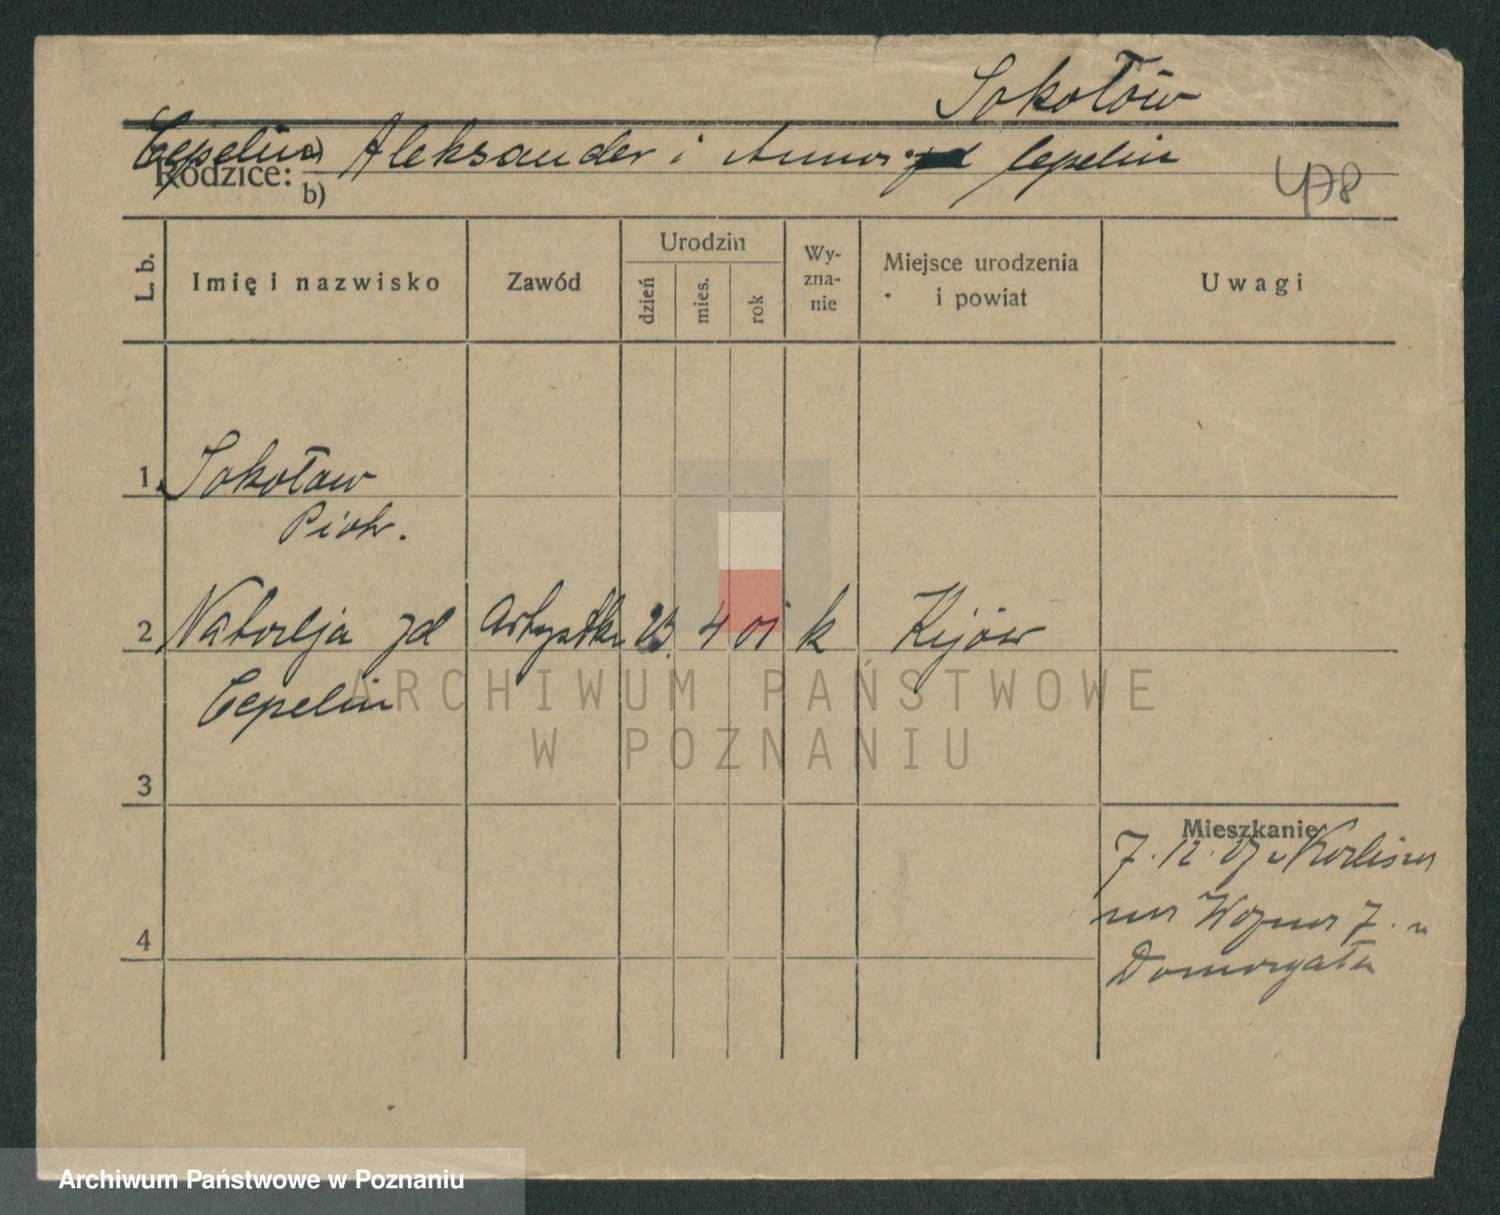 Sokołów
Cepelin a) Aleksander i Anna Cepelin
Rodzice:
b)
478
L. b.
Imię i nazwisko
Zawód
Urodzin
dzień
mies.
rok
Wy-
zna-
nie
Miejsce urodzenia
i powiat
Uwagi
1. Sokołow
Piotr.
2 Natalja zd artystka 23. 4 01 k Kijów
Cepelin
3
Mieszkanie
7. 12. 27 z Kalisza
na Wozna 7. u
Domagała
4
ARCHIWUM PAŃSTWOWE
W POZNANIU
Archiwum Państwowe w Poznaniu